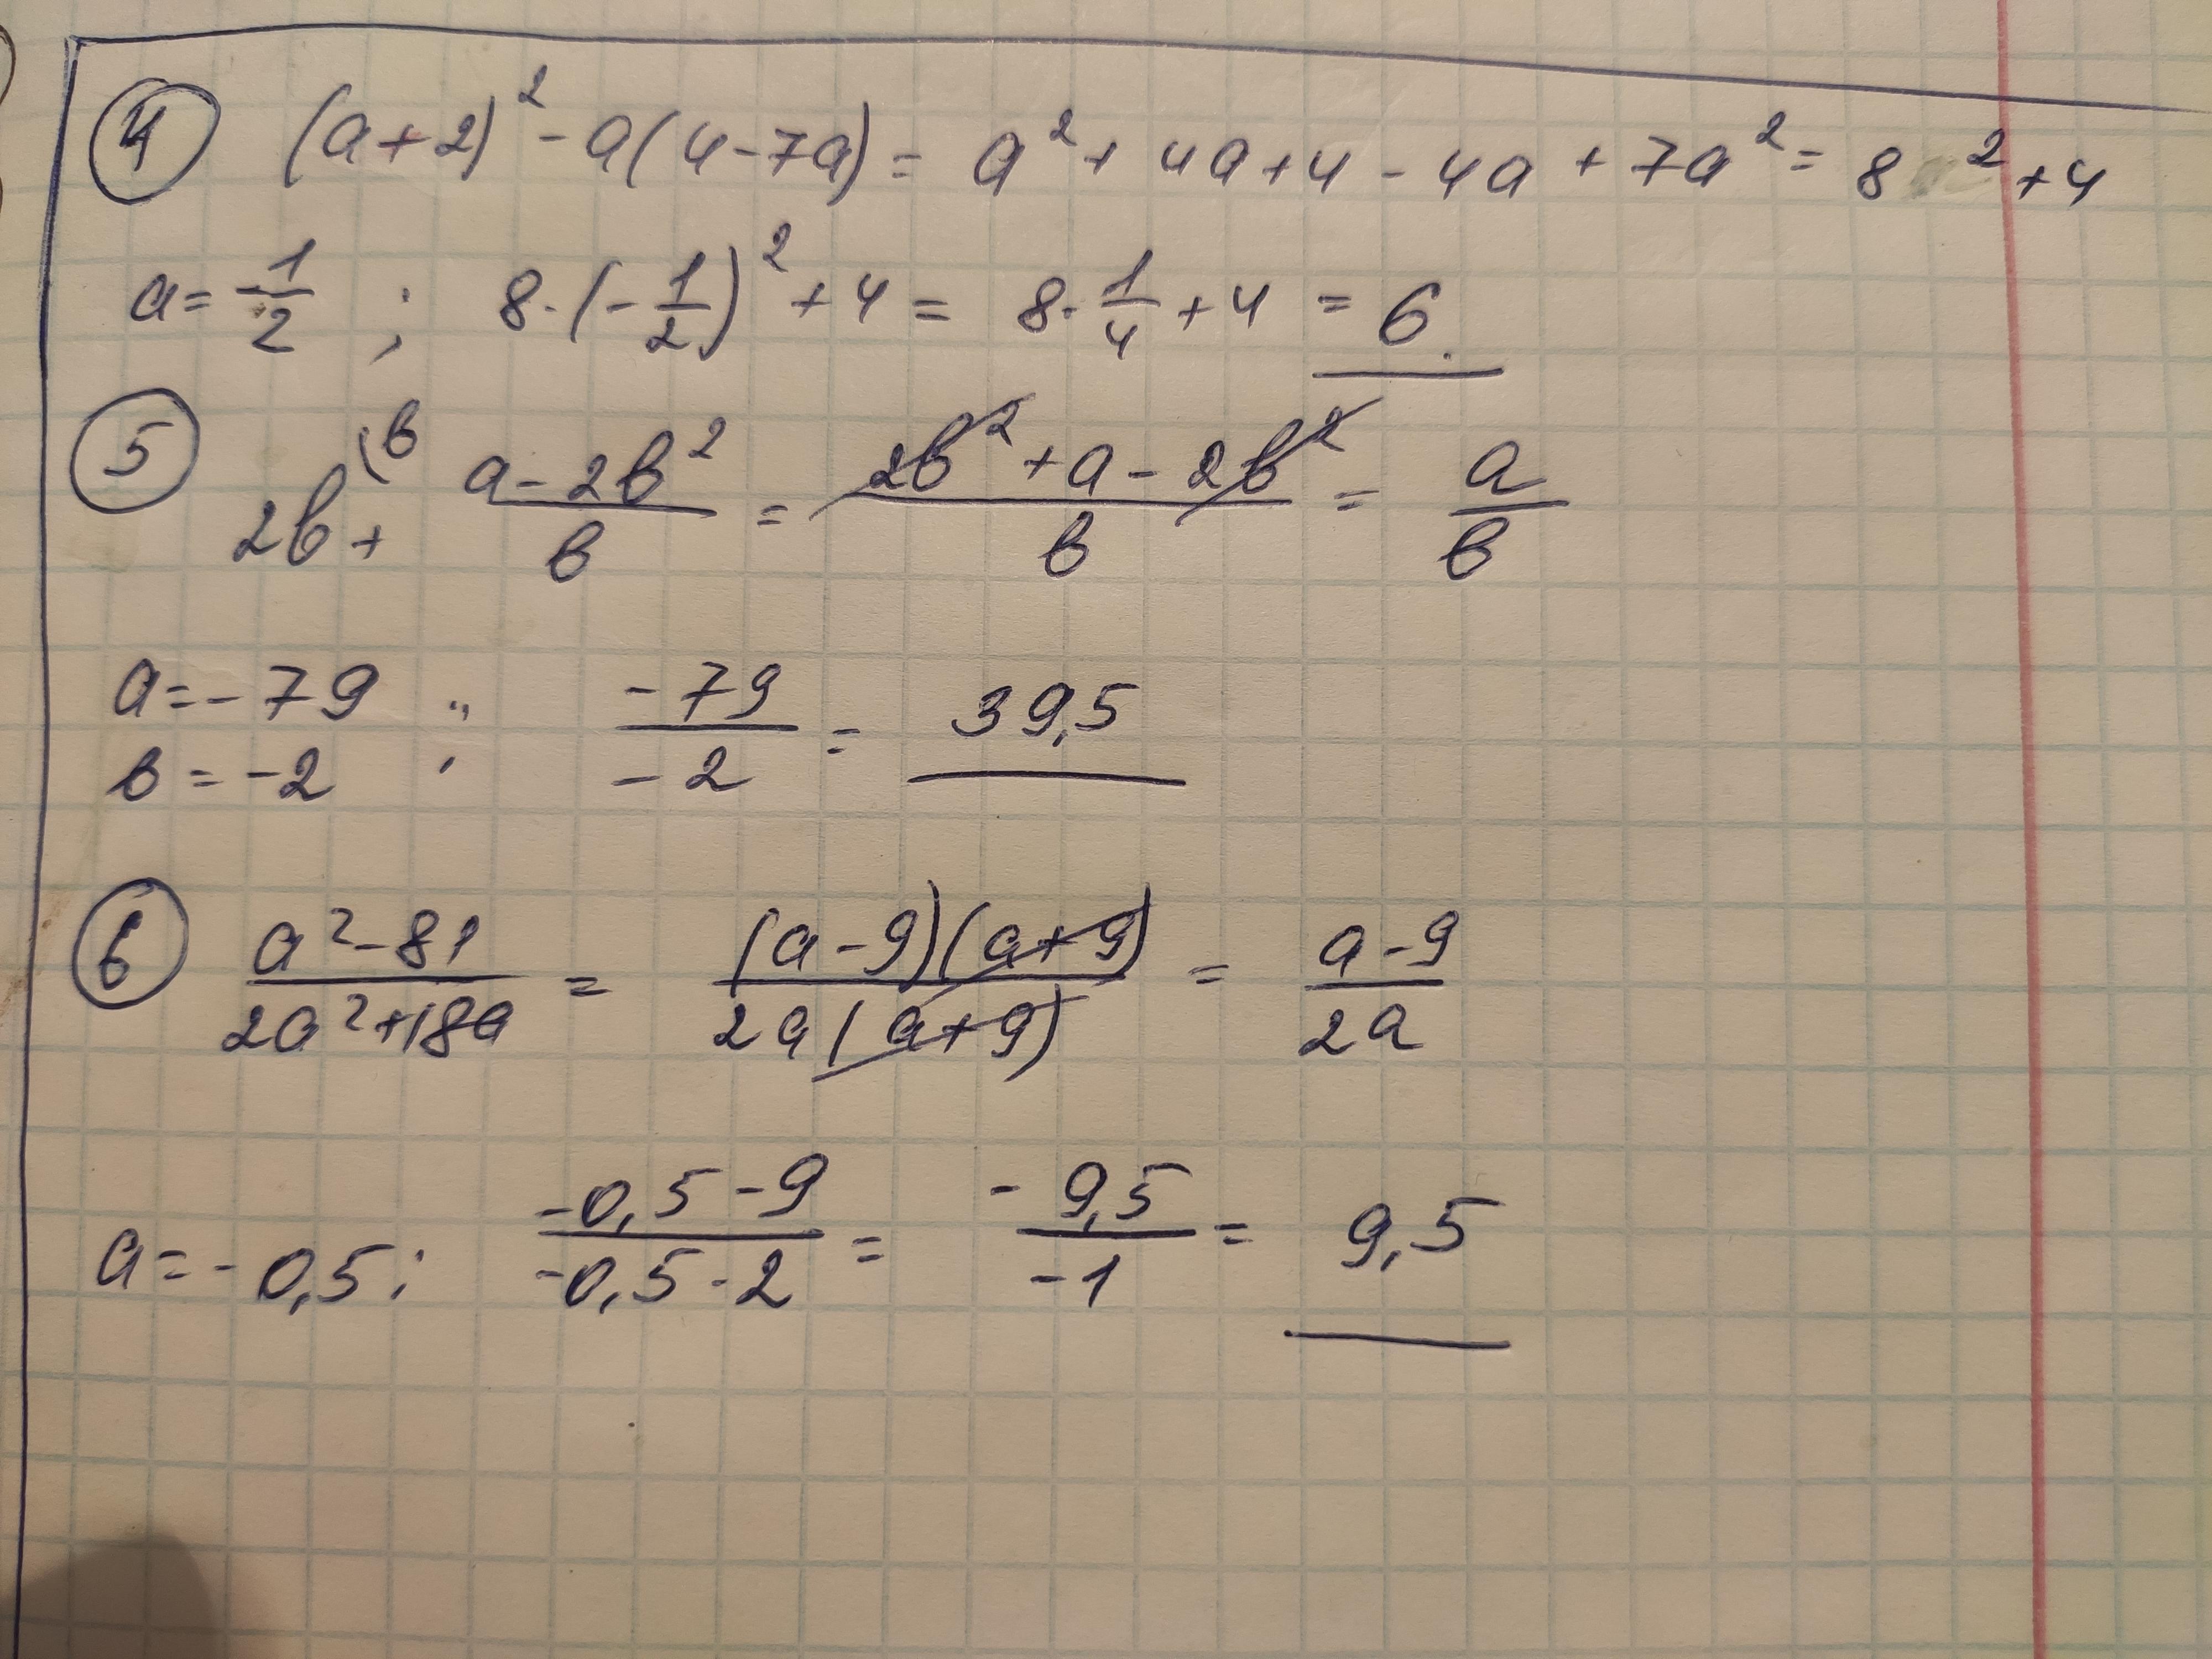 ④ (a+2)² - a(4-7a) = a² + 4a + 4 - 4a + 7a² = 8 ² + 4
a = -1/2 ; 8·(-1/2)² + 4 = 8·1/4 + 4 = 6.
⑤ 2b\b + (a-2b²)/b = (2b² + a - 2b²)/b = a/b
a = -79 ; b = -2 ; -79/-2 = 39,5
⑥ (a²-81)/(2a²+18a) = ((a-9)(a+9))/(2a(a+9)) = (a-9)/(2a)
a = -0,5 ; (-0,5-9)/(-0,5·2) = -9,5/-1 = 9,5